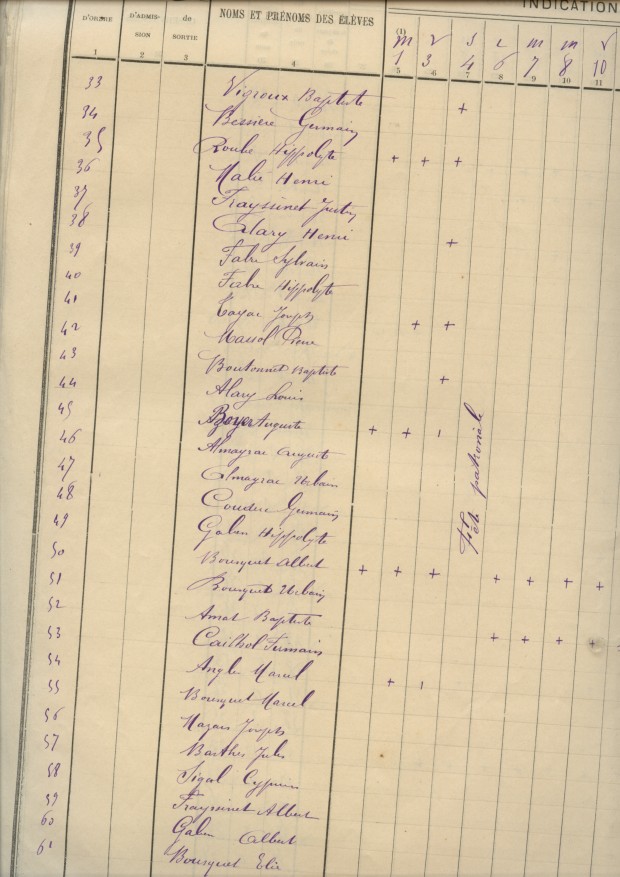 INDICATION
D'ORDRE D'ADMISSION de SORTIE NOMS ET PRÉNOMS DES ÉLÈVES
(1)
m v s m m v
1 3 4 6 7 8 10
1 2 3 4 5 6 7 8 9 10 11
33 Vigroux Baptiste +
34 Bessière Germain
35 Rouhe Hippolyte + + +
36 Malié Henri
37 Frayssinet Justin
38 Henri +
39 Fabre Sylvain
40 Fabre Hippolyte
41 Cayac Joseph + +
42 Massol Pierre
43 Boutonnet Baptiste +
44 Alary Louis
45 Boyer Auguste + + ı
46 Almayrac Auguste
47 Almayrac Urbain
48 Couderc Germain
49 Galen Hippolyte
Fête patronale
50 Bousquet Albert + + + + + + +
51 Bousquet Urbain
52 Amat Baptiste
53 Cailhol Firmin + + + +
54 Angles Marcel + ı
55 Bousquet Marcel
56 Mazars Joseph
57 Barthes Jules
58 Sigal Cyprien
59 Frayssinet Albert
60 Galen Albert
61 Bousquet Elie